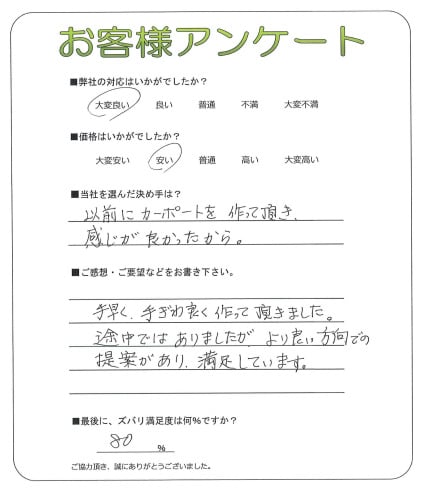 お客様アンケート
■弊社の対応はいかがでしたか？
大変良い 良い 普通 不満 大変不満
■価格はいかがでしたか？
大変安い 安い 普通 高い 大変高い
■当社を選んだ決め手は？
以前にカーポートを作って頂き、
感じが良かったから。
■ご感想・ご要望などをお書き下さい。
手早く、手ぎわ良く作って頂きました。
途中ではありましたが、より良い方向での
提案があり、満足しています。
■最後に、ズバリ満足度は何％ですか？
80 %
ご協力頂き、誠にありがとうございました。